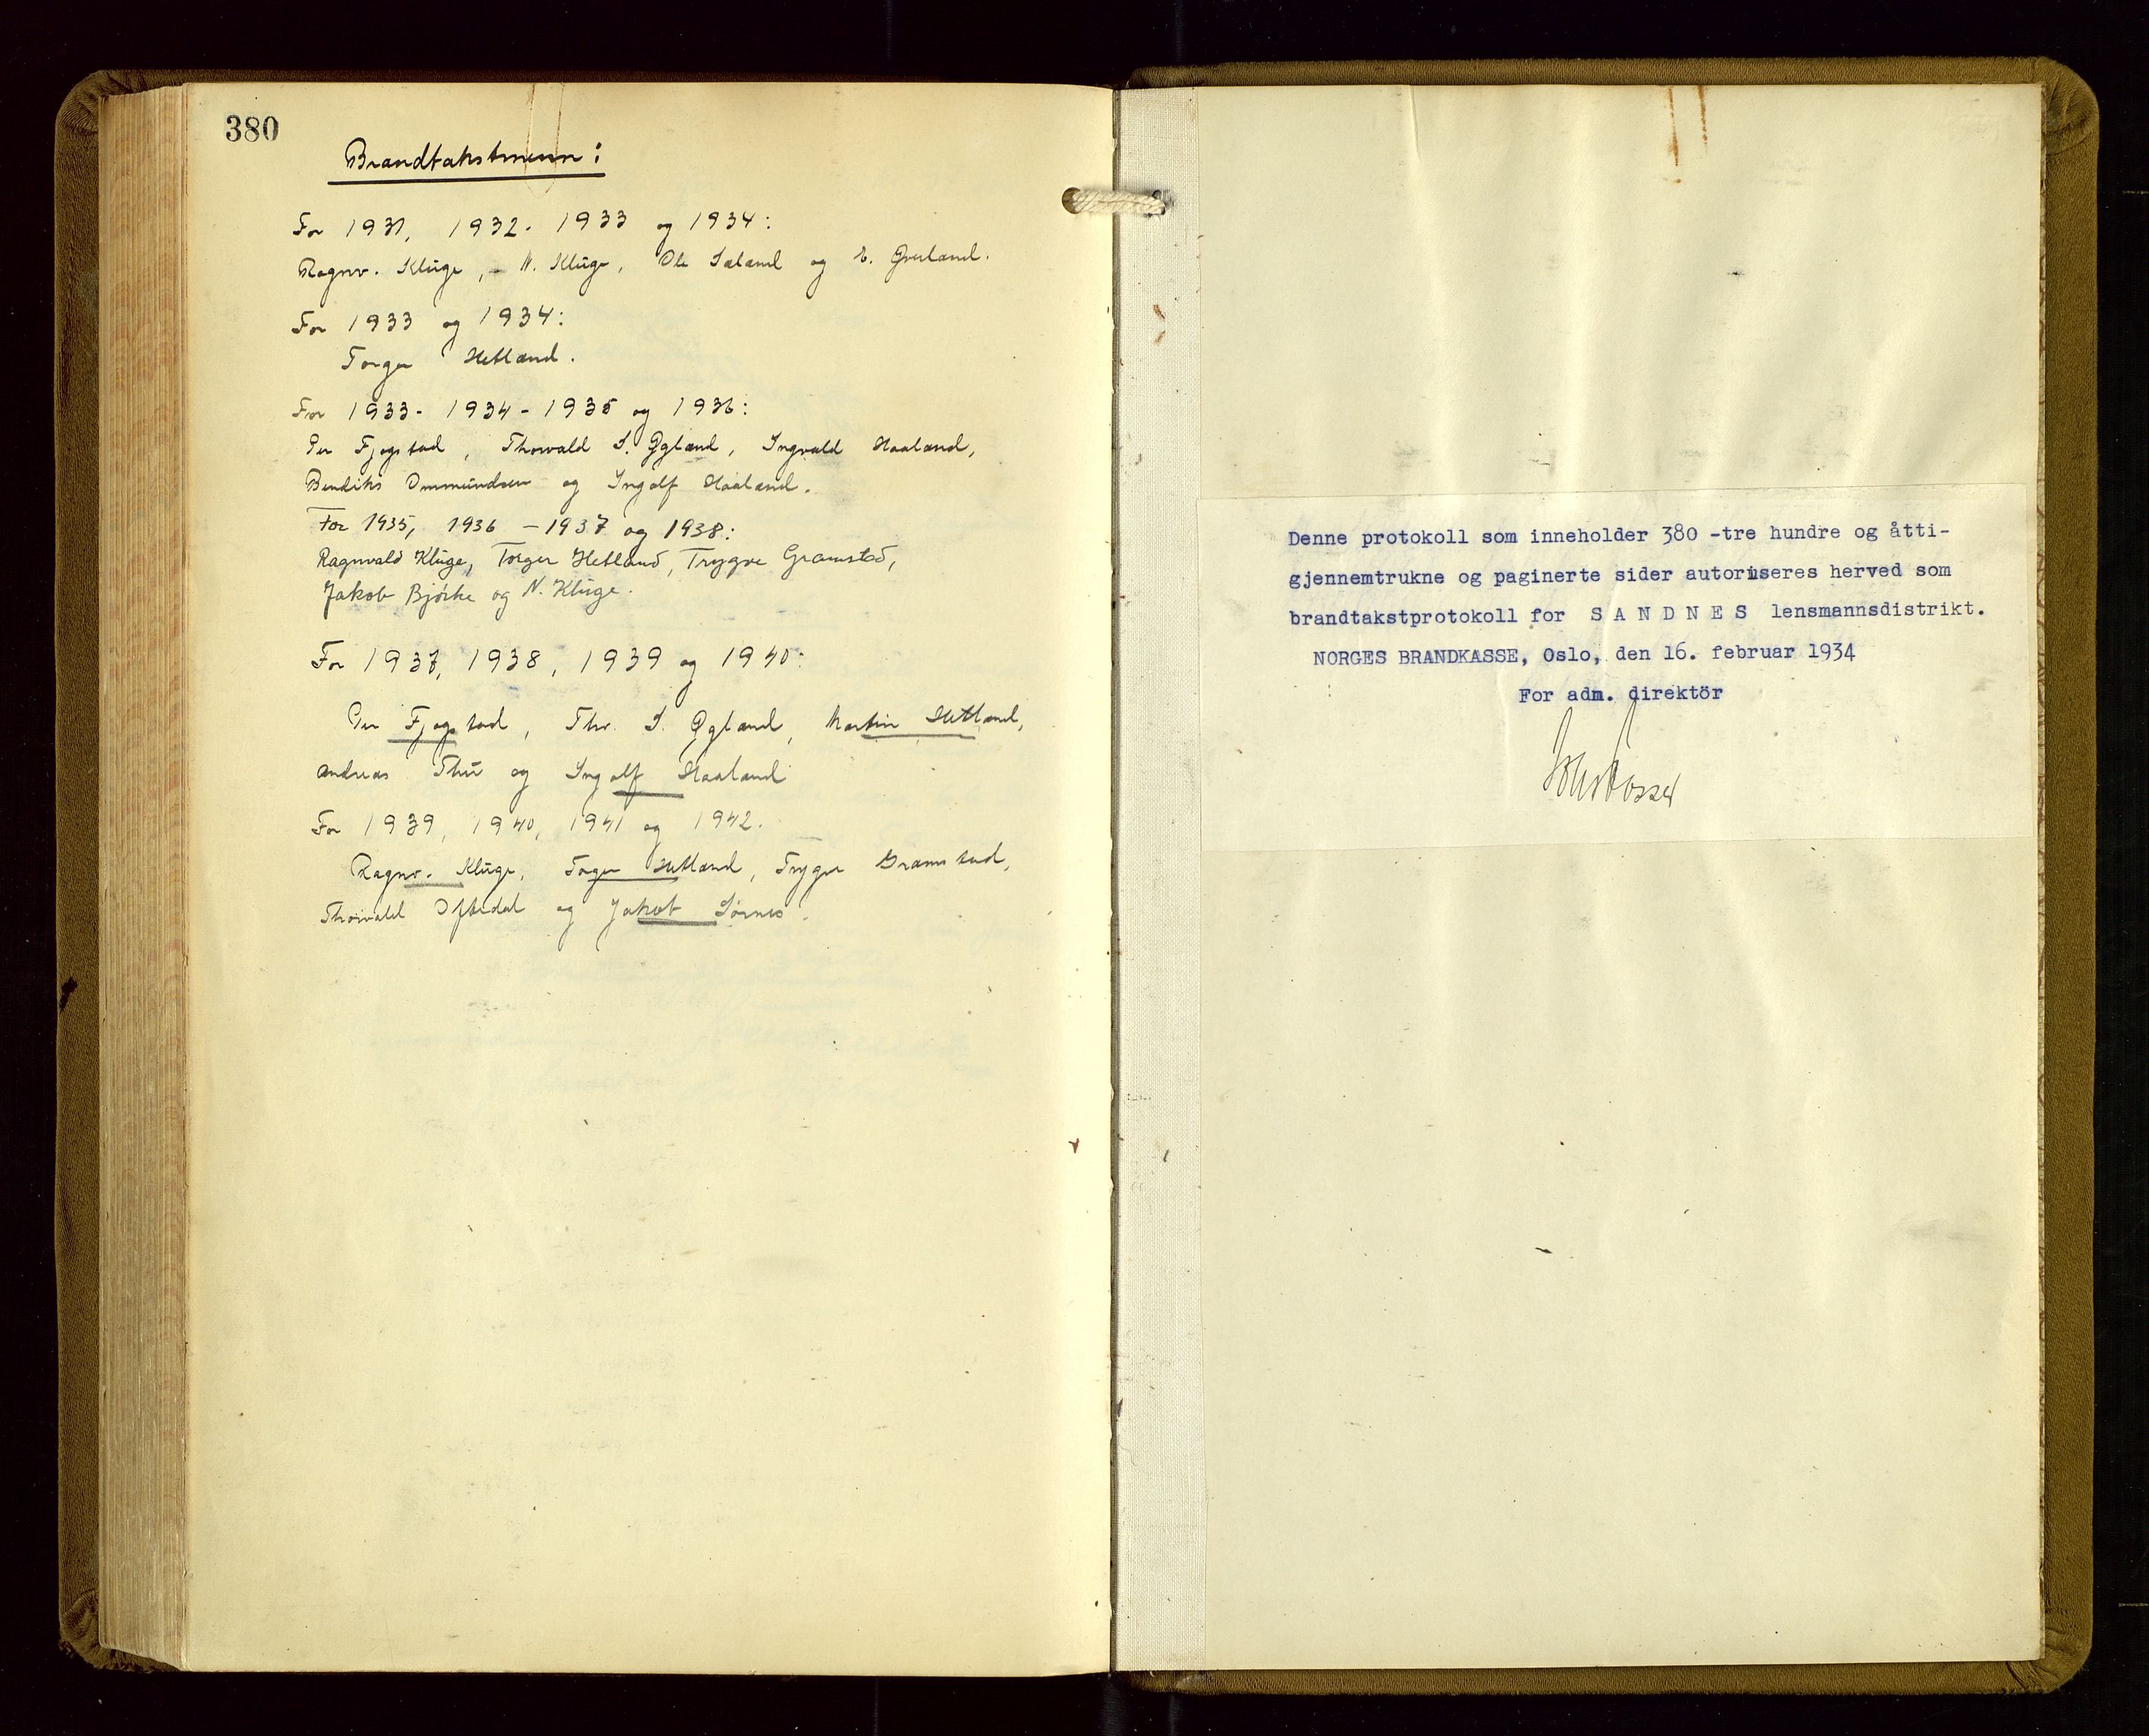 380
Brandtakstmenn:
For 1931, 1932. 1933 og 1934:
Ragnv. Kluge, - N. Kluge, Ole Sæland og
For 1933 og 1934:
Torger Hetland.
For 1933- 1934- 1935 og 1936:
Per Fjogstad, Thorvald S. Øgland, Ingvald Haaland,
Bendiks Ommundsen og Ingolf Haaland.
For 1935, 1936 - 1937 og 1938:
Ragnvald Kluge, Torger Hetland, Trygve Gramstad,
Jakob Bjørke og N. Kluge.
For 1937, 1938, 1939 og 1940:
Per Fjogstad, Thv. S. Øgland, Martin Hetland,
Andreas Thu og Ingolf Haaland
For 1939, 1940, 1941 og 1942.
Ragnv. Kluge, Torger Hetland, Trygve Gramstad,
Thorvald Oftedal og Jakob Sørnes.
Denne protokoll som inneholder 380 -tre hundre og åtti-
gjennemtrukne og paginerte sider autoriseres herved som
brandtakstprotokoll for S A N D N E S lensmannsdistrikt.
NORGES BRANDKASSE, Oslo, den 16. februar 1934
For adm. direktör